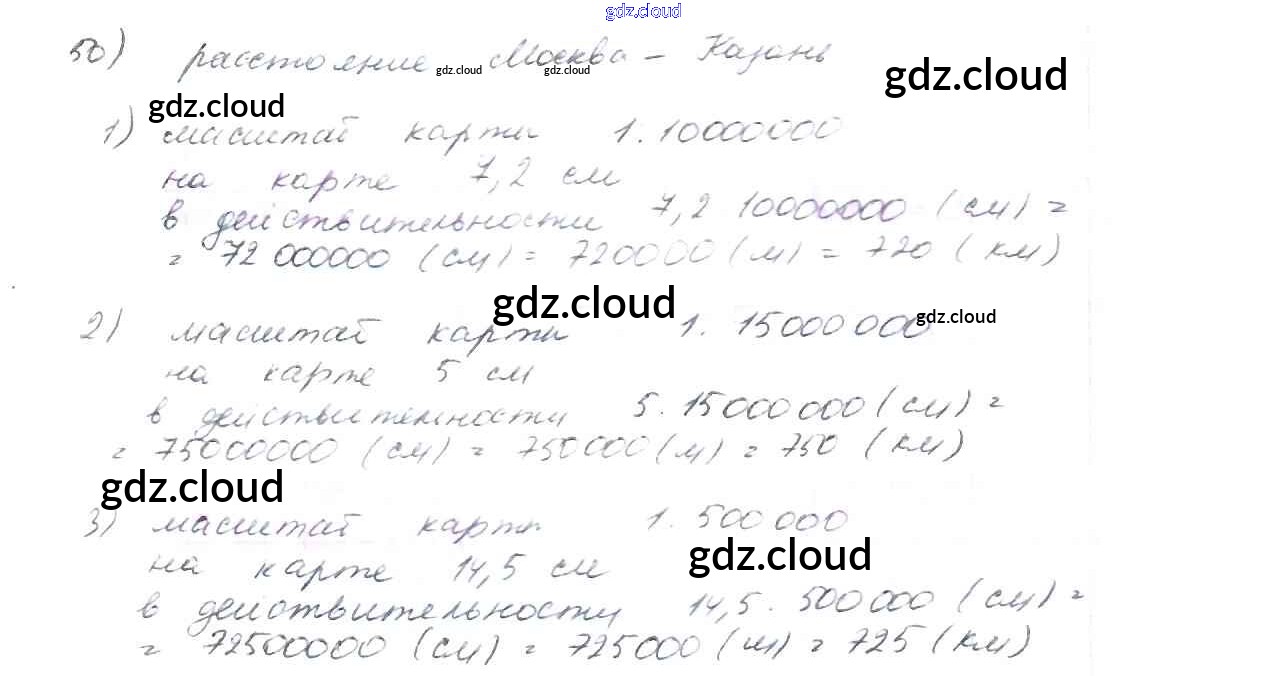 gdz.cloud
50) расстояние Москва – Казань
gdz.cloud gdz.cloud gdz.cloud
gdz.cloud
1) масштаб карты 1:10000000
на карте 7,2 см
в действительности 7,2 10000000 (см) =
= 72 000000 (см) = 720000 (м) = 720 (км)
gdz.cloud
2) масштаб карты 1:15000 000
gdz.cloud
на карте 5 см
в действительности 5·15000 000 (см) =
= 75000000 (см) = 750000 (м) = 750 (км)
gdz.cloud
3) масштаб карты 1:500 000
gdz.cloud
на карте 14,5 см
в действительности 14,5·500 000 (см) =
= 72500000 (см) = 725000 (м) = 725 (км)